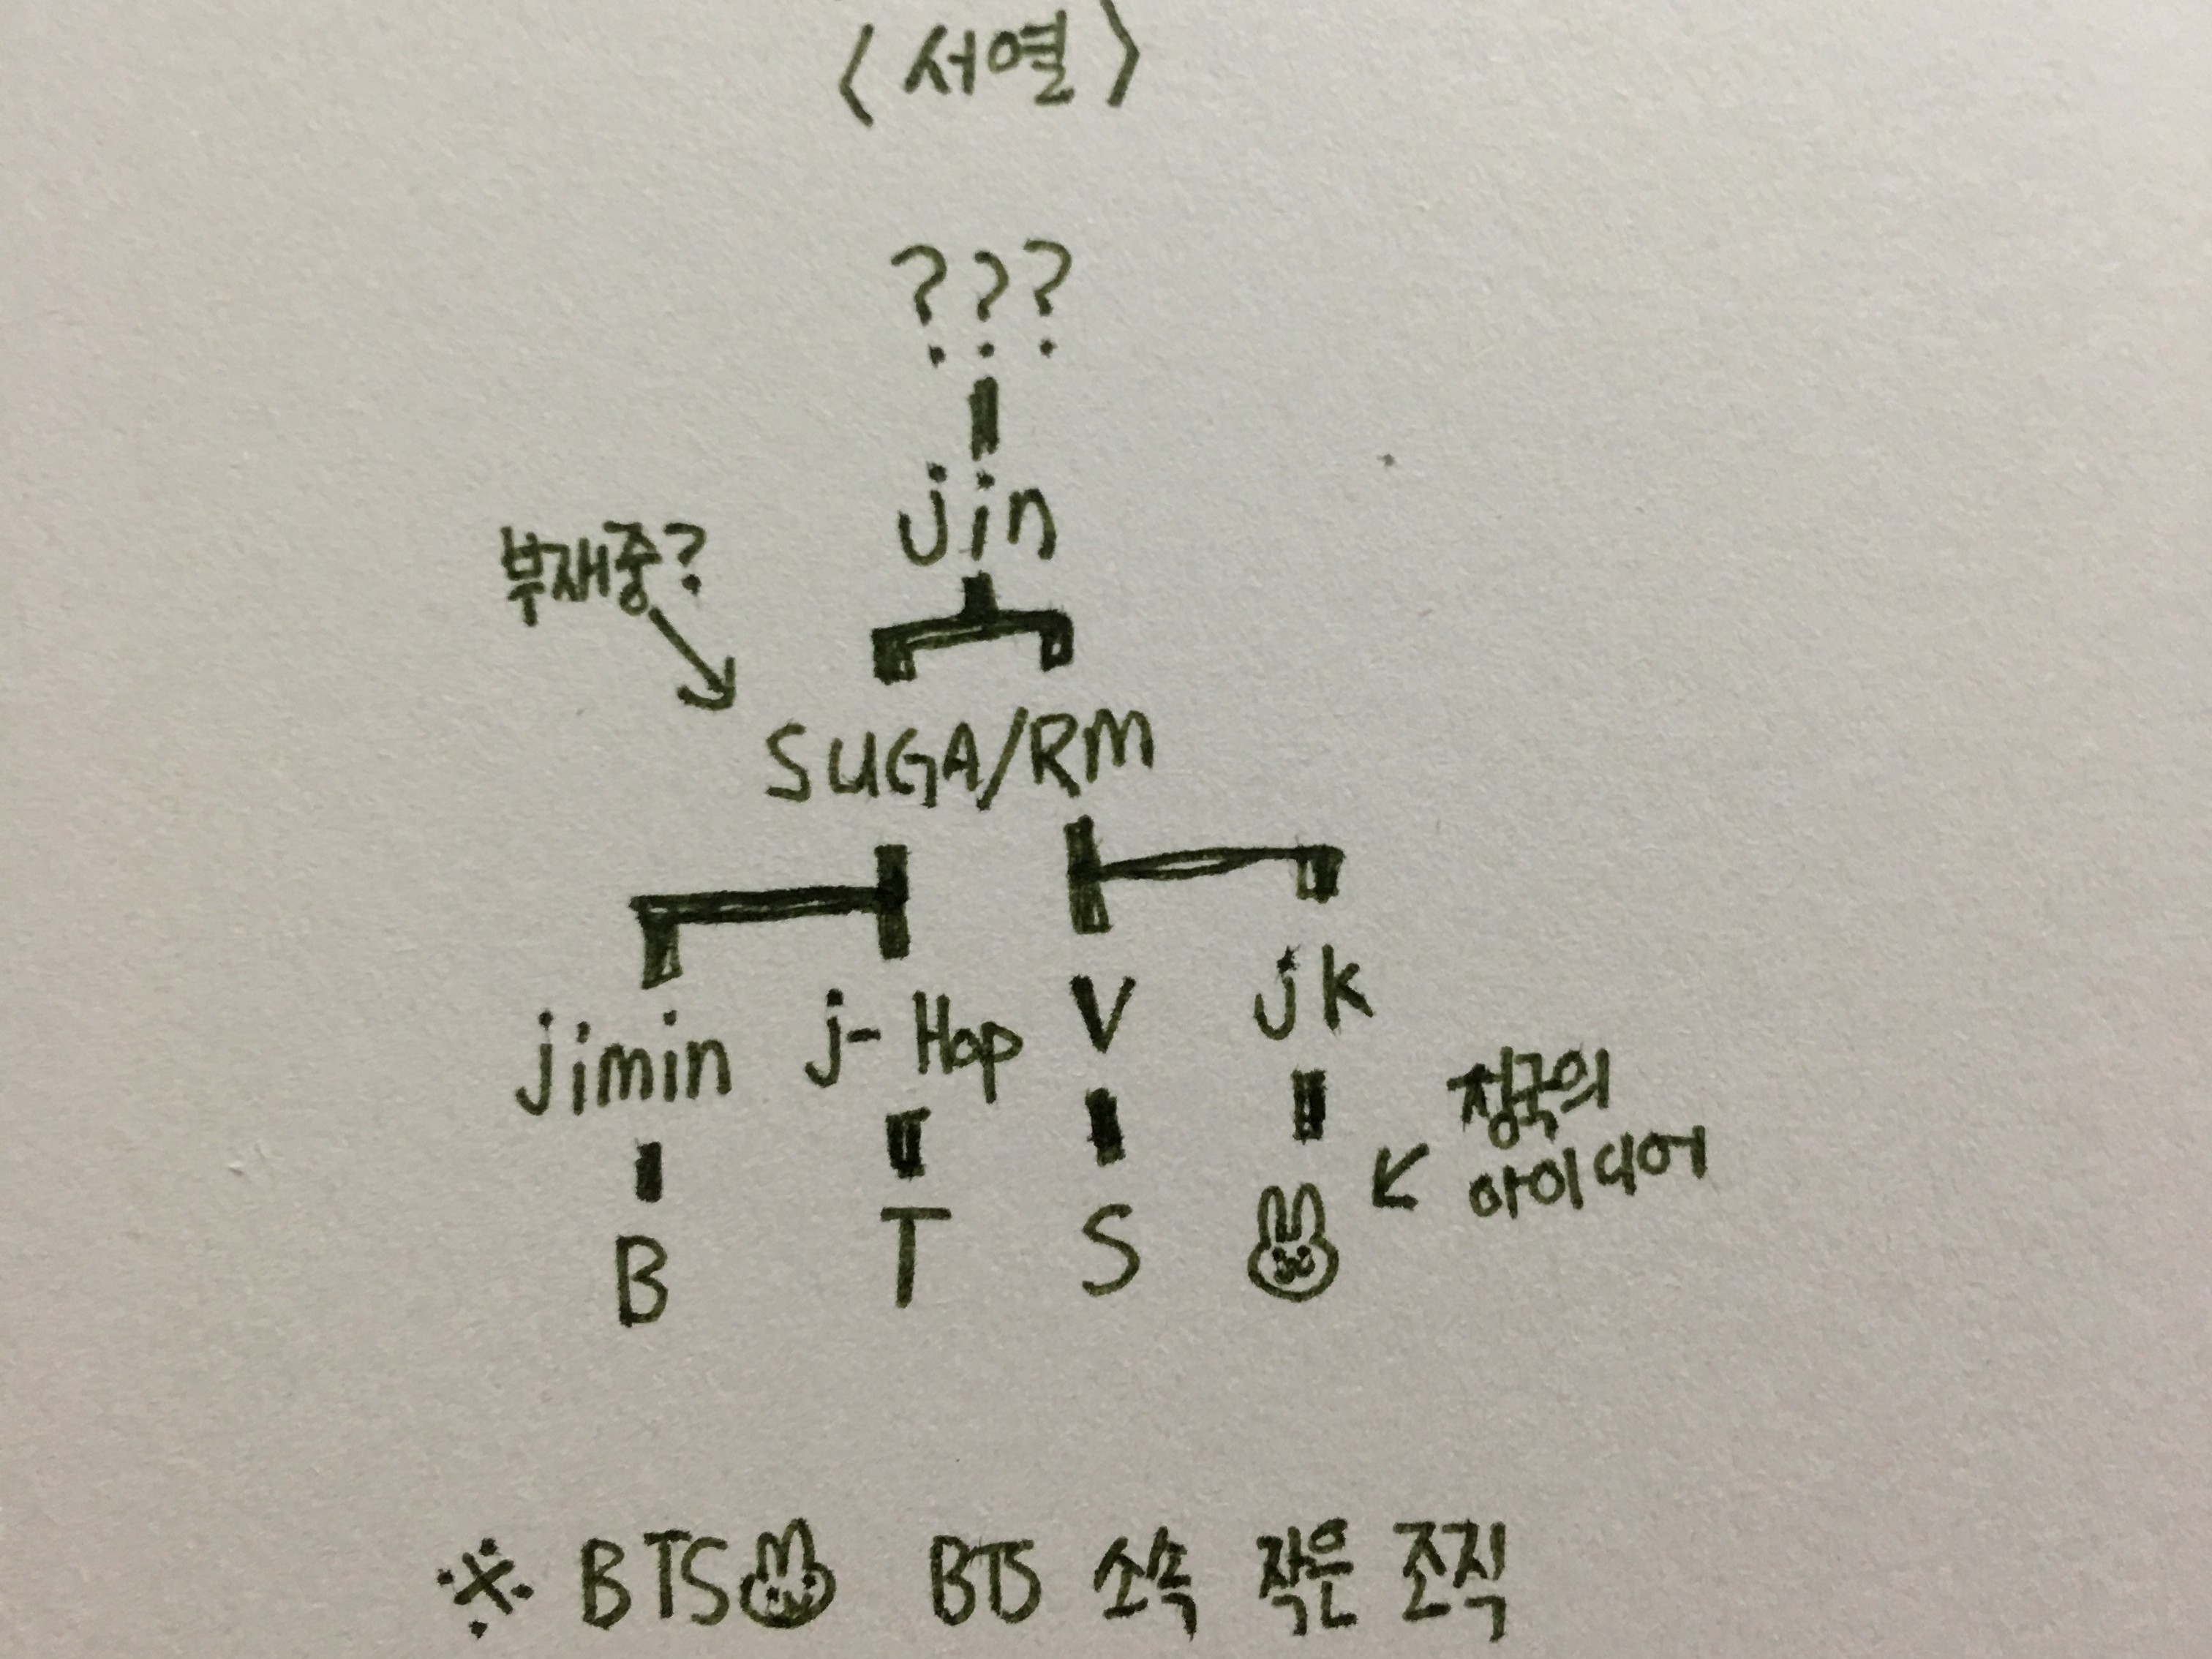 <서열>
???
jin
부재중?
SUGA/RM
jimin j-Hop V jk
정국의
아이디어
B T S
※ BTS BTS 소속 작은 조직